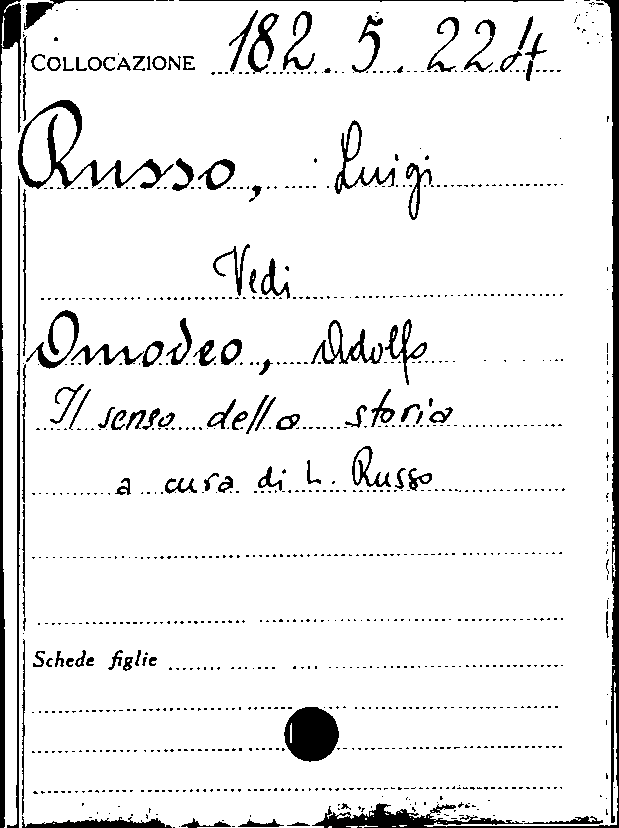 COLLOCAZIONE 182.5.224
Russo, Luigi
Vedi
Omodeo, Adolfo
Il senso della storia
a cura di L. Russo
Schede figlie